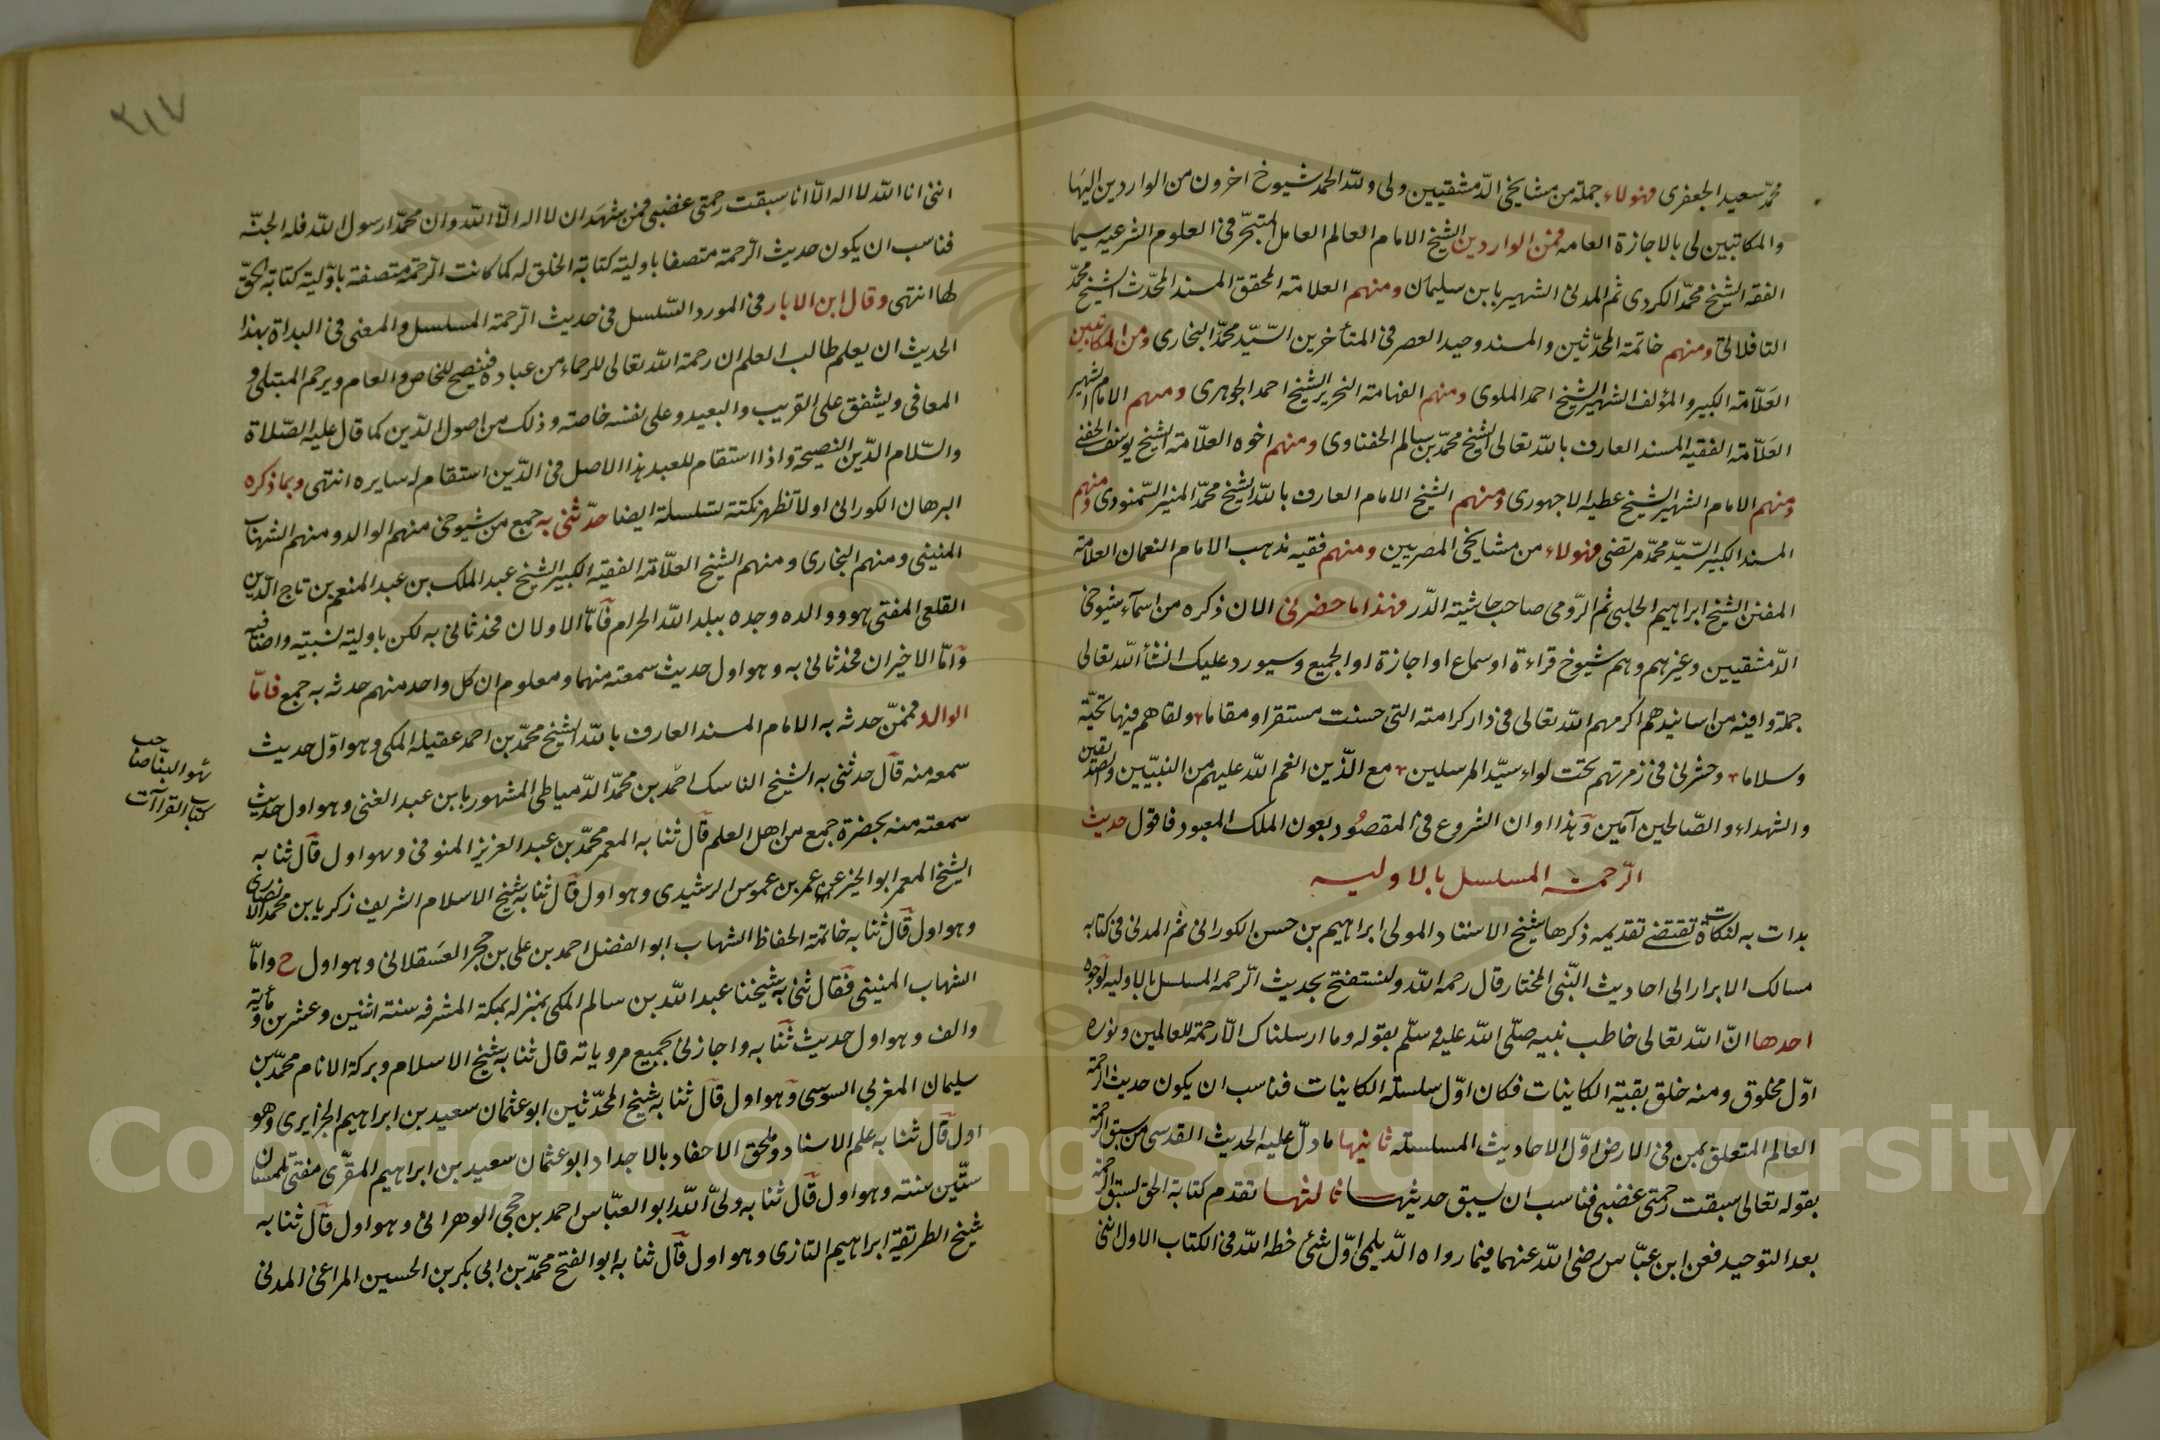 محمد سعيد الجعفري فهولاء جملة من مشايخي الدمشقيين ولى ولله الحمد شيوخ اخرون من الواردين اليها
والمكاتبين لى بالاجازة العامه فمن الواردين الشيخ الامام العالم العامل المتبحر فى العلوم الشرعيه سيما
الفقه الشيخ محمد الكردى ثم المدنى الشهير بابن سليمان ومنهم العلامة المحقق المسند المحدث الشيخ محمد
التافلاتى ومنهم خاتمة المحدثين والمسند وحيد العصر فى المتأخرين السيد محمد البخارى ومن المكاتبين
العلامة الكبير والمؤلف الشهير الشيخ احمد الملوى ومنهم الفهامة النحرير الشيخ احمد الجوهرى ومنهم الامام الشهير
العلامة الفقيه المسند العارف بالله تعالى الشيخ محمد بن سالم الحفناوى ومنهم اخوه العلامة الشيخ يوسف الحفنى
ومنهم الامام الشهير الشيخ عطيه الاجهورى ومنهم الشيخ الامام العارف بالله الشيخ محمد المنير السمنودى ومنهم
المسند الكبير السيد محمد مرتضى فهولاء من مشايخى المصريين ومنهم فقيه مذهب الامام النعمان العلامة
المفنن الشيخ ابراهيم الحلبى ثم الرومى صاحب حاشية الدر فهذا ما حضرنى الان ذكره من اسماء شيوخى
الدمشقيين وغيرهم وهم شيوخ قراءة او سماع او اجازة او الجميع وسيورد عليك انشأ الله تعالى
جملة وافيه من اسانيدهم اكرمهم الله تعالى فى دار كرامته التى حسنت مستقرا ومقاما ولقاهم فيها تحية
وسلاما وحشرنى فى زمرتهم تحت لواء سيد المرسلين مع الذين انعم الله عليهم من النبيين والصديقين
والشهداء والصالحين آمين وهذا اوان الشروع فى المقصود بعون الملك المعبود فاقول حديث
الرحمة المسلسل بالاوليه
بدات به لنكات تقتضى تقديمه ذكرها شيخ الاستاد المولى ابراهيم بن حسن الكورانى ثم المدنى فى كتابه
مسالك الابرار الى احاديث النبى المختار قال رحمه الله ولنستفتح بحديث الرحمه المسلسل بالاوليه لوجوه
احدها ان الله تعالى خاطب نبيه صلى الله عليه وسلم بقوله وما ارسلناك الا رحمة للعالمين ونوره
اول مخلوق ومنه خلق بقية الكاينات فكان اول سلسلة الكاينات فناسب ان يكون حديث الرحمة
العالم المتعلق بمن فى الارض اول الاحاديث المسلسله ثانيها ما دل عليه الحديث القدسى من سبق الرحمة
بقوله تعالى سبقت رحمتى غضبى فناسب ان يسبق حديثها ثالثها تقدم كتابة الحق لسبق الرحمة
بعد التوحيد فعن ابن عباس رضى الله عنهما فيما رواه الديلمى اول شئ خطه الله فى الكتاب الاول اننى
٢١٧
اننى انا الله لا اله الا انا سبقت رحمتى غضبى فمن شهد ان لا اله الا الله وان محمدا رسول الله فله الجنة
فناسب ان يكون حديث الرحمة متصفا باولية كتابة الخلق له كما كانت الرحمة متصفة باولية كتابة الحق
لها انتهى وقال ابن الابار فى المورد السلسل فى حديث الرحمة المسلسل والمعنى فى البداة بهذا
الحديث ان يعلم طالب العلم ان رحمة الله تعالى للرحماء من عباده فينصح للخاص والعام ويرحم المبتلى و
المعافى ويشفق على القريب والبعيد وعلى نفسه خاصة وذلك من اصول الدين كما قال عليه الصلاة
والسلام الدين النصيحة واذا استقام للعبد هذا الاصل فى الدين استقام له سايره انتهى وبما ذكره
البرهان الكورانى اولا تظهر نكتة تسلسله ايضا حدثنى به جمع من شيوخى منهم الوالد ومنهم الشهاب
المنينى ومنهم البخارى ومنهم الشيخ العلامة الفقيه الكبير الشيخ عبد الملك بن عبد المنعم بن تاج الدين
القلعى المفتى هو ووالده وجده ببلد الله الحرام فاما الاولان فحدثانى به لكن باولية نسبيه واضافيه
واما الاخيران فحدثانى به وهو اول حديث سمعته منهما ومعلوم ان كل واحد منهم حدثه به جمع فاما
الوالد فممن حدثه به الامام المسند العارف بالله الشيخ محمد بن احمد عقيله المكى وهو اول حديث
سمعه منه قال حدثنى به الشيخ الناسك احمد بن محمد الدمياطى المشهور بابن عبد الغنى وهو اول حديث
سمعته منه بحضرة جمع من اهل العلم قال ثنا به المعمر محمد بن عبد العزيز المنوفى وهو اول قال ثنا به
الشيخ المعمر ابو الخير عن عمر بن عموس الرشيدى وهو اول قال ثنا به شيخ الاسلام الشريف زكريا بن محمد الانصارى
وهو اول قال ثنا به خاتمة الحفاظ الشهاب ابو الفضل احمد بن على بن حجر العسقلانى وهو اول ح واما
الشهاب المنينى فقال ثنى به شيخنا عبد الله بن سالم المكى بمنزله بمكة المشرفه سنة اثنين وعشرين ومأية
والف وهو اول حديث ثنا به واجازنى بجميع مروياته قال ثنا به شيخ الاسلام وبركة الانام محمد بن
سليمان المغربى السوسى وهو اول قال ثنا به شيخ المحدثين ابو عثمان سعيد بن ابراهيم الجزايرى وهو
اول قال ثنا به علم الاسناد وملحق الاحفاد بالاجداد ابو عثمان سعيد بن ابراهيم المقرى مفتى تلمسان
ستين سنة وهو اول قال ثنا به ولى الله ابو العباس احمد بن حجى الوهرانى وهو اول قال ثنا به
شيخ الطريقة ابراهيم التازى وهو اول قال ثنا به ابو الفتح محمد بن ابى بكر بن الحسين المراغى المدنى
هو البنا صاحب
كتاب القراآت
Copyright © King Saud University